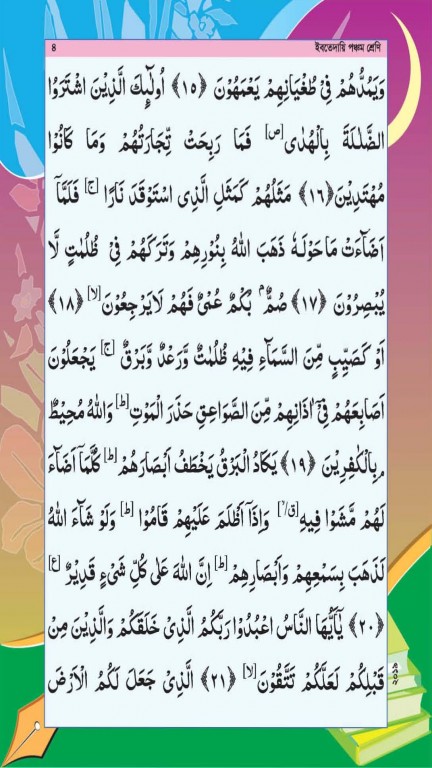 ৪ ইবতেদায়ি পঞ্চম শ্রেণি
وَيَمُدُّهُمْ فِيْ طُغْيَانِهِمْ يَعْمَهُوْنَ ﴿١٥﴾ اُولٰٓئِكَ الَّذِيْنَ اشْتَرَوُا
الضَّلٰلَةَ بِالْهُدٰى [ص] فَمَا رَبِحَتْ تِّجَارَتُهُمْ وَمَا كَانُوْا
مُهْتَدِيْنَ ﴿١٦﴾ مَثَلُهُمْ كَمَثَلِ الَّذِى اسْتَوْقَدَ نَارًا [ج] فَلَمَّآ
اَضَآءَتْ مَاحَوْلَهٗ ذَهَبَ اللهُ بِنُوْرِهِمْ وَتَرَكَهُمْ فِيْ ظُلُمٰتٍ لَّا
يُبْصِرُوْنَ ﴿١٧﴾ صُمٌّ ۢ بُكْمٌ عُمْىٌ فَهُمْ لَايَرْجِعُوْنَ [لا] ﴿١٨﴾
اَوْ كَصَيِّبٍ مِّنَ السَّمَآءِ فِيْهِ ظُلُمٰتٌ وَّرَعْدٌ وَّبَرْقٌ [ج] يَجْعَلُوْنَ
اَصَابِعَهُمْ فِيْٓ اٰذَانِهِمْ مِّنَ الصَّوَاعِقِ حَذَرَ الْمَوْتِ [ط] وَاللهُ مُحِيْطٌ
ۢ بِالْكٰفِرِيْنَ ﴿١٩﴾ يَكَادُ الْبَرْقُ يَخْطَفُ اَبْصَارَهُمْ [ط] كُلَّمَآ اَضَآءَ
لَهُمْ مَّشَوْا فِيْهِ [ق/لا] وَاِذَآ اَظْلَمَ عَلَيْهِمْ قَامُوْا [ط] وَلَوْ شَآءَ اللهُ
لَذَهَبَ بِسَمْعِهِمْ وَاَبْصَارِهِمْ [ط] اِنَّ اللهَ عَلٰى كُلِّ شَىْءٍ قَدِيْرٌ [ع]
﴿٢٠﴾ يٰٓاَيُّهَا النَّاسُ اعْبُدُوْا رَبَّكُمُ الَّذِيْ خَلَقَكُمْ وَالَّذِيْنَ مِنْ
قَبْلِكُمْ لَعَلَّكُمْ تَتَّقُوْنَ [لا] ﴿٢١﴾ الَّذِيْ جَعَلَ لَكُمُ الْاَرْضَ